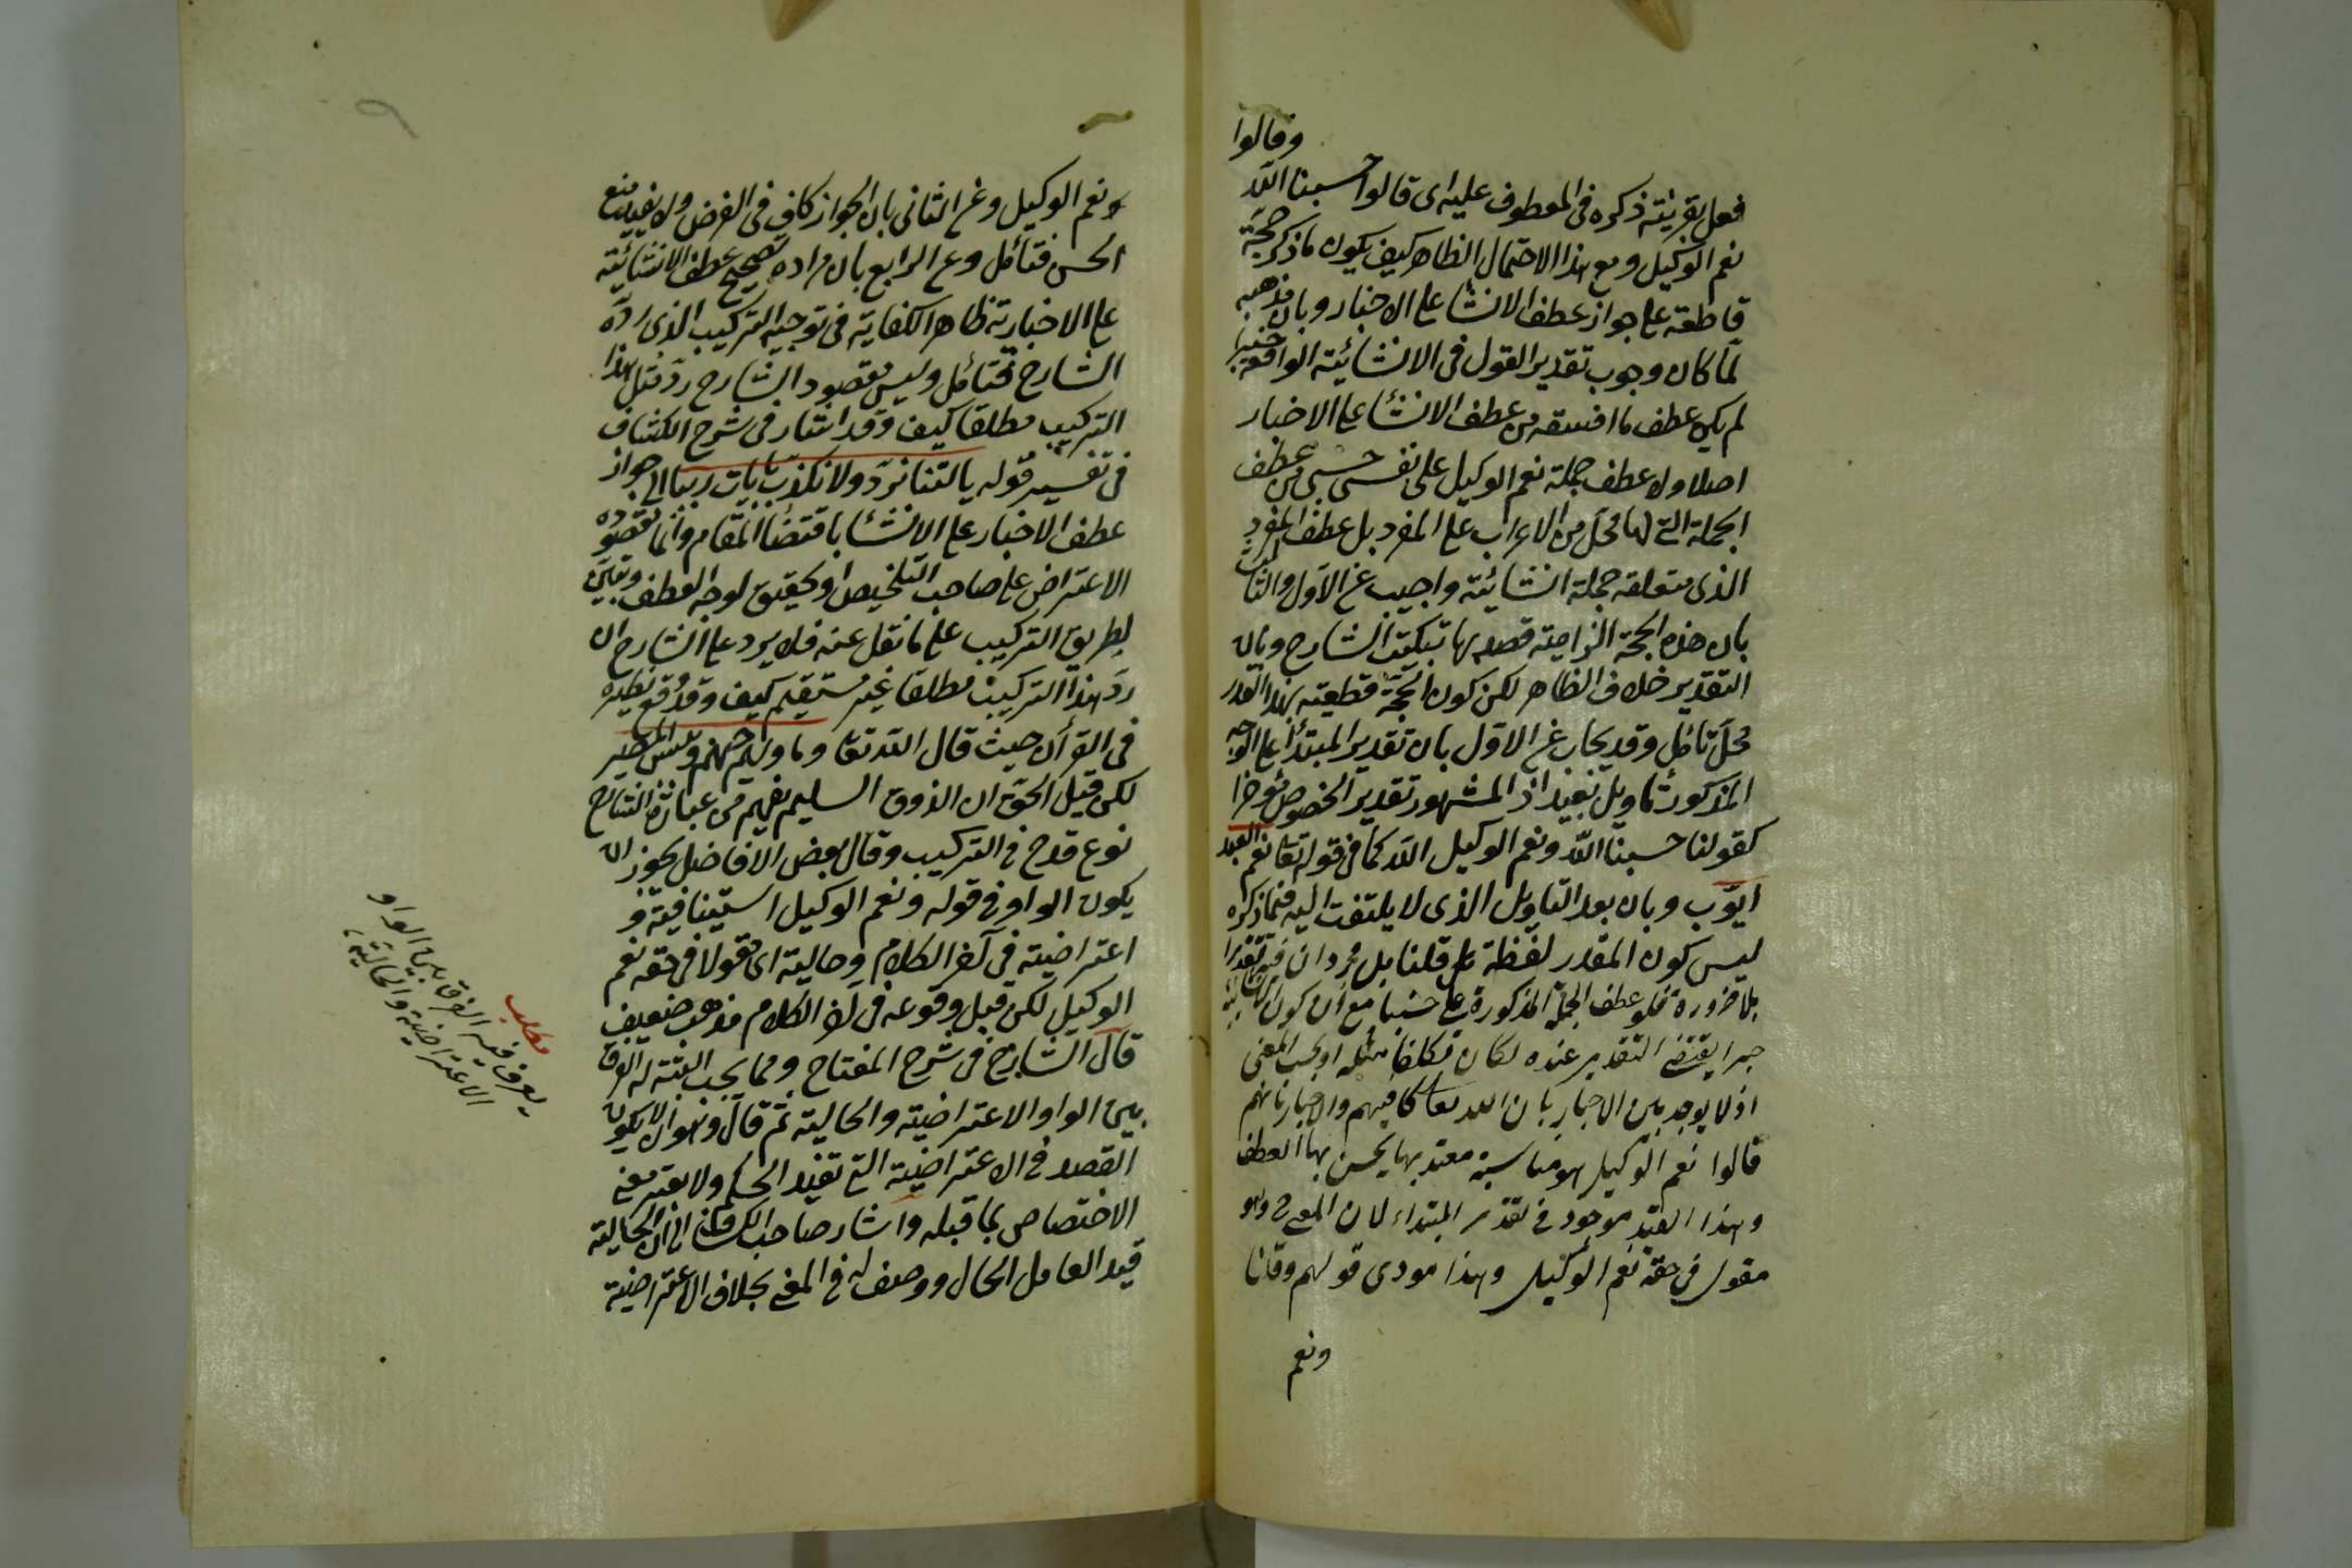 وقالوا
فعل بقرينة ذكره فى المعطوف عليه اى قالوا حسبنا الله
نعم الوكيل ومع هذا الاحتمال الظاهر كيف يكون ما ذكر حجة
قاطعة على جواز عطف الانشا على الاخبار وبان مذهبه
لما كان وجوب تقدير القول فى الانشائية الواقعة خبرا
لم يكن عطف ما افسقه من عطف الانشا على الاخبار
اصلا ولا عطف جملة نعم الوكيل على نفس حسبى من عطف
الجملة التى لها محل من الاعراب على المفرد بل عطف المفرد
الذى متعلقه جملة انشائية واجيب عن الاول والثالث
بان هذه الحجة الزامية قصد بها تبكيت الشارح وبان
التقدير خلاف الظاهر لكن كون الحجة قطعية بهذا القدر
محل تامل وقد يجاب عن الاول بان تقدير المبتدأ على الوجه
المذكور تاويل بعيد اذ المشهور تقدير المخصوص مؤخرا
كقولنا حسبنا الله ونعم الوكيل الله كما فى قوله تعا نعم العبد
ايوب وبان بعد التاويل الذى لا يلتفت اليه فيما ذكره
ليس كون المقدر لفظة قلنا بل مجرد ان فيه تقديرا
بلا ضرورة فلو عطف الجملة المذكورة على حسبنا مع ان كون
خبرا يقتضى التقدير عنده لكان تكلفا مثله او بحسب المعنى
اذ لا يوجد بين الاخبار بان الله تعا كافيهم والاخبار بانهم
قالوا نعم الوكيل هو مناسبة معتد بها يحسن بها العطف
وهذا القيد موجود فى تقدير المبتداء لان المعنى ح وهو
مقول فى حقه نعم الوكيل وهذا مودى قولهم وقلنا
ونعم
ونعم الوكيل وعن الثانى بان الجواز كاف فى الغرض ولا يفيد منع
الحسن فتأمل وعن الرابع بان مراده تصحيح عطف الانشائية
على الاخبارية ظاهر الكفاية فى توجيه التركيب الذى رده
الشارح فتأمل وليس مقصود الشارح رد مثل هذا
التركيب مطلقا كيف وقد اشار فى شرح الكشاف
فى تفسير قوله يا ليتنا نرد ولا نكذب بآيات ربنا الى جواز
عطف الاخبار على الانشا باقتضا المقام وانما مقصوده
الاعتراض على صاحب التلخيص او تحقيق لوجه العطف وتبيين
لطريق التركيب على ما نقل عنه فلا يرد على الشارح ان
رد هذا التركيب مطلقا غير مستقيم كيف وقد وقع نظيره
فى القرآن حيث قال الله تعا وماويهم جهنم وبئس المصير
لكن قيل الحق ان الذوق السليم يفهم من عبارة الشارح
نوع قدح فى التركيب وقال بعض الافاضل يجوز ان
يكون الواو فى قوله ونعم الوكيل استينافية و
اعتراضية فى آخر الكلام وحالية اى مقولا فى حقه نعم
الوكيل لكن قيل وقوعه فى آخر الكلام مذهب ضعيف
قال الشارح فى شرح المفتاح ومما يجب التنبه له الفرق
بين الواو الاعتراضية والحالية ثم قال وهو ان لا يكون
القصد فى الاعتراضية التى تقيد الحكم ولا يعتبر معنى
الاختصاص بما قبله واشار صاحب الكشاف الى ان الحالية
قيد العامل الحال ووصف له فى المعنى بخلاف الاعتراضية
مطلب
يعرف فيه الفرق بين الواو
الاعتراضية والحالية